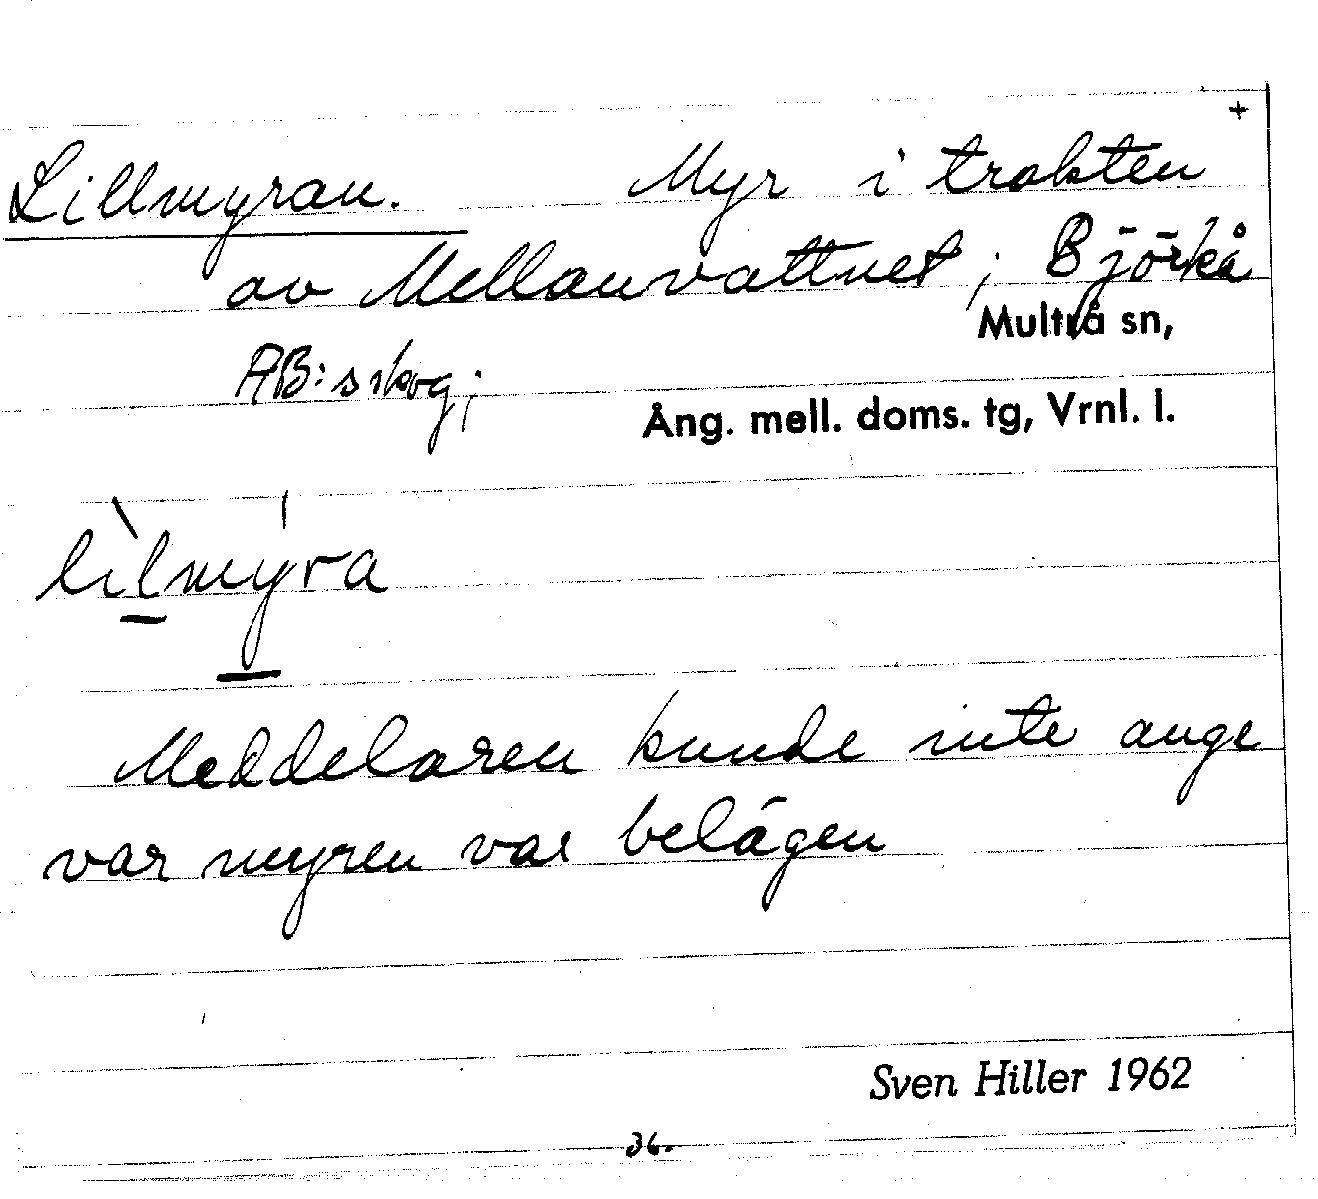 +
Lillmyran. Myr i trakten
av Mellanvattnet; Björkå
Multrå sn,
AB:s skog;
Ång. mell. doms. tg, Vrnl. l.
lìlmýra
Meddelaren kunde inte ange
var myren var belägen
Sven Hiller 1962
36.